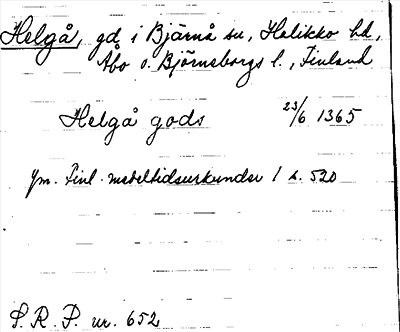 Helgå, gd i Bjärnå sn, Halikko hd,
Åbo o. Björneborgs l., Finland
Helgå gods 23/6 1365
Ym. Finl. medeltidsurkunder 1 s. 520
S. R. P. nr. 652